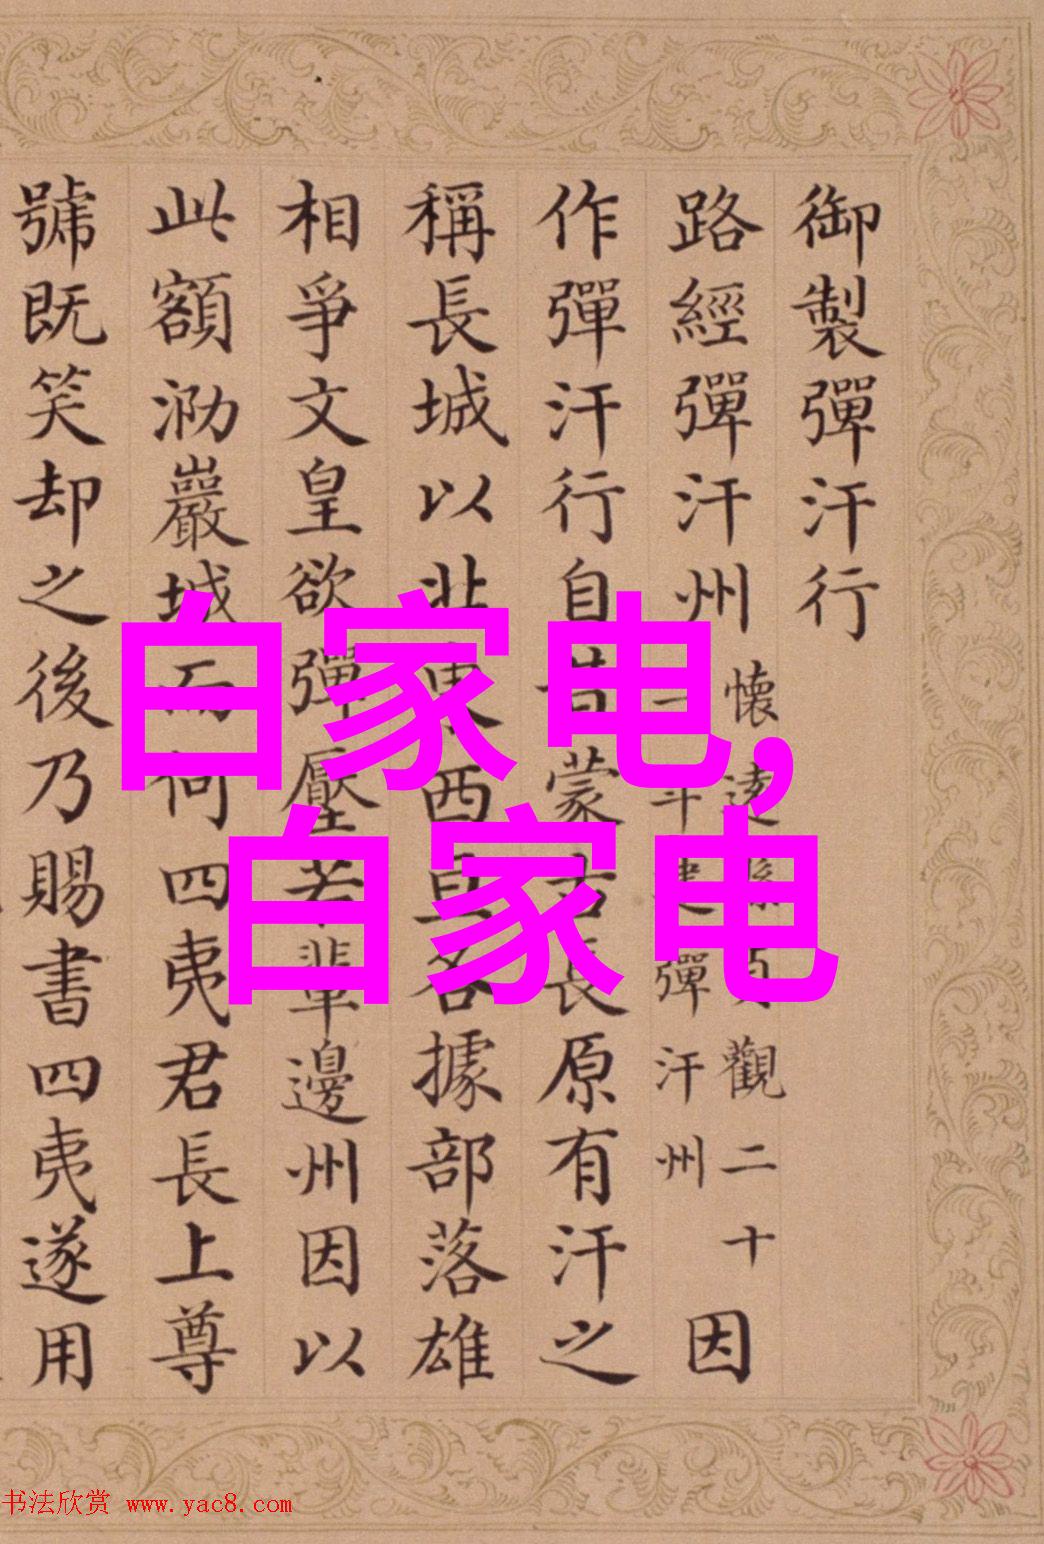 御製彈汗行
路經彈汗州
懷遠觀二十
彈汗州
因
作彈汗行自昔蒙古長原有汗之
稱長城以北東西且各據部落雄
相爭文皇欲彈壓若輩邊州因以
此額泐巖城而何四夷君長上尊
號既笑却之後乃賜書四夷遂用
白家电,
白家电
书法欣赏 www.yac8.com